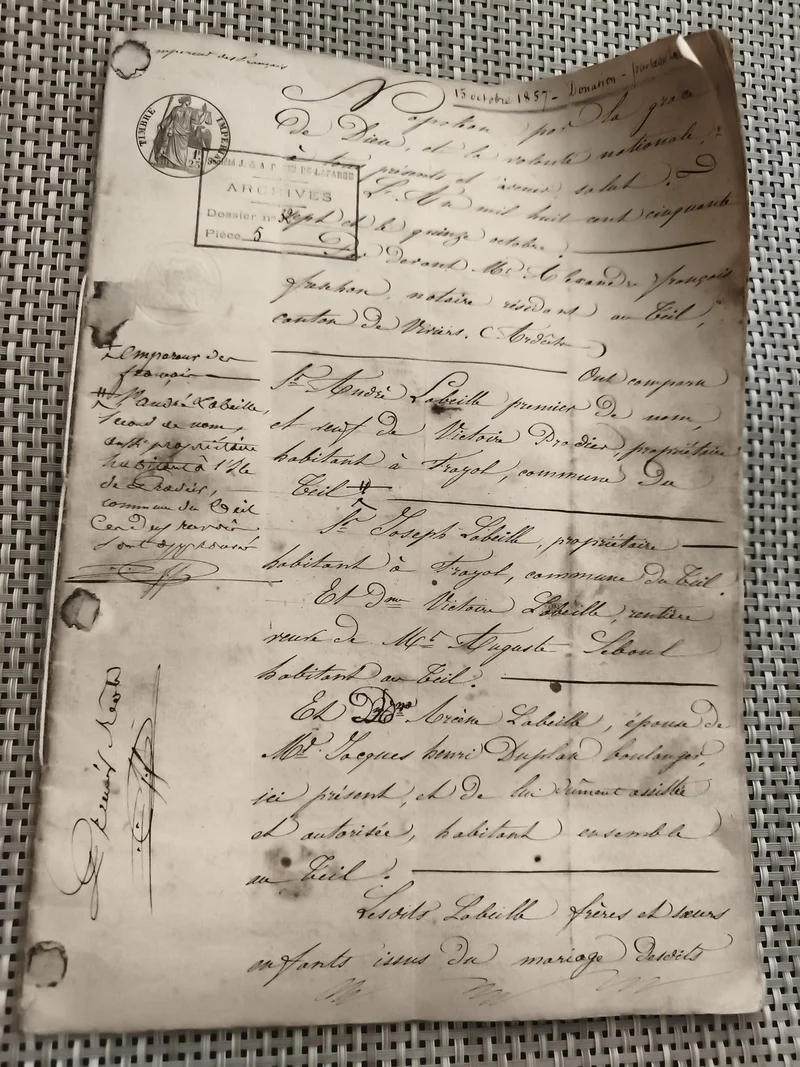 15 octobre 1857 - Donation -
Empereur des Français
TIMBRE IMPERIAL
ARCHIVES
Dossier n°
Pièce 5
Napoléon, par la grace
de Dieu, et la volonté nationale,
à tous présents et à venir salut.
L'An mil huit cent cinquante
sept et le quinze octobre.
Par devant Me Alexandre françois
notaire résidant au Teil,
canton de Viviers. (Ardèche)
Ont comparu
Sr André Labeille premier de nom,
et veuf de Victoire Pradier, propriétaire
habitant à Frayol, commune du
Teil #
Sr Joseph Labeille, propriétaire
habitant à Frayol, commune du Teil.
Et Dme Victoire Labeille, rentière
veuve de Mr Auguste
habitant au Teil.
Et Dme Labeille, épouse de
Mr Jacques henri boulanger,
ici présent, et de lui dûment assistée
et autorisée, habitant ensemble
au Teil.
Lesdits Labeille frères et sœurs
enfants issus du mariage desdits
empereur des
français
# Sr andré Labeille,
second de nom,
propriétaire
habitant à l'Ile
de Pradier,
commune du Teil
Ces deux renvois
sont approuvés